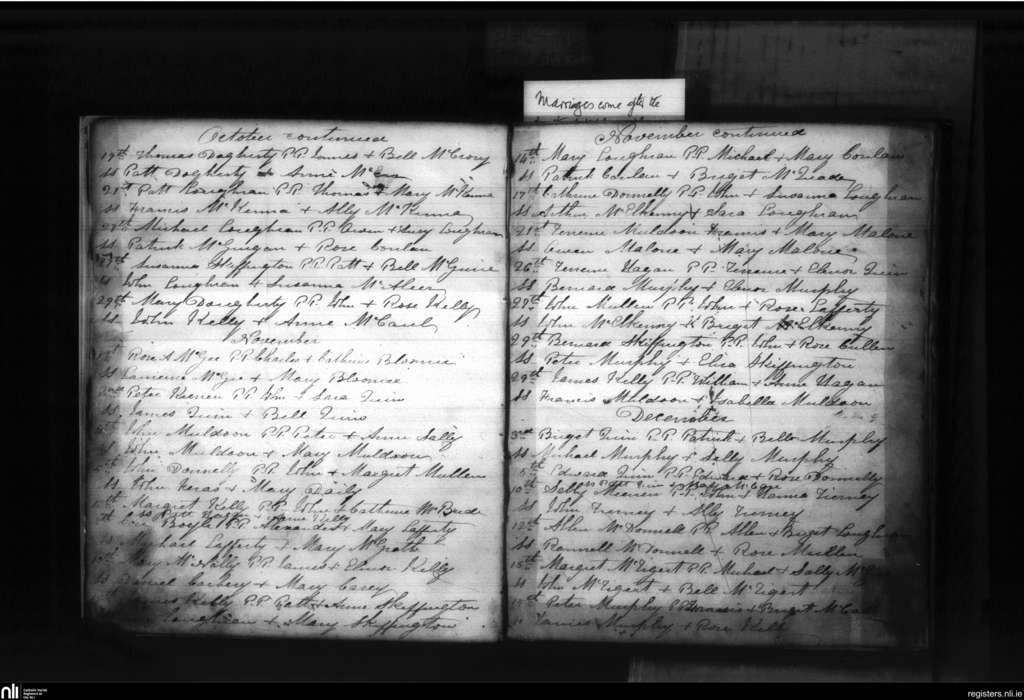 Marriages come after the
October continued
19th Thomas Dogherty P.P. James & Bell McCrory
ss Patt Dogherty & Annie
21st Patt Loughran P.P. Thomas & Mary McKenna
ss Francis McKenna & Ally McKenna
Michael Loughran P.P. Owen & Loughran
ss Patrick McGurgan & Rose Conlan
27th Susanna Skeffington P.P. Patt & Bell McGuire
ss John Loughran & Susanna McAleer
29th Mary Dougherty P.P. John & Rose Kelly
ss John Kelly & Anne McCaul
November
Rose A McGee P.P. Charles & Cathrine Bloomie
ss McGee & Mary Bloomie
2nd Peter Keenen P.P. Wm & Sara Quin
ss James Quin & Bell Quin
John Muldoon P.P. Peter & Anne Lally
ss John Muldoon & Mary Muldoon
John Donnelly P.P. John & Margret Mullen
ss John & Mary Daily
Margret Kelly P.P. John & Cathrine McBride
ss Patt & Jane Kelly
Boyle P.P. Alexander & Mary Lafferty
Michael Lafferty & Mary McGrath
Mary McNally P.P. James & Elenor Kelly
ss Daniel & Mary Carey
James Kelly P.P. Patt & Anne Skeffington
Loughran & Mary Skeffington
November continued
14th Mary Loughran P.P. Michael & Mary Conlan
ss Patrick Conlan & Briget McQuade
17th Cathrine Donnelly P.P. John & Susanna Loughran
ss Arthur McElhenny & Sara Loughran
21st Terence Muldoon Francis & Mary Malone
ss Owen Malone & Mary Malone
26th Terence Hagan P.P. Terence & Elenor Quin
ss Bernard Murphy & Elenor Murphy
27th John Mullen P.P. John & Rose Lafferty
ss John McElhenny & Briget McElhenny
29th Bernard Skeffington P.P. John & Rose Cullen
ss Peter Murphy & Eliza Skeffington
29th James Kelly P.P. William & Anne Hagan
ss Francis Muldoon & Isabella Muldoon
December
3rd Briget Quin P.P. Patrick & Bell Murphy
ss Michael Murphy & Selly Murphy
5th Edward Quin P.P. Edward & Rose Donnelly
ss Patt Quin &
10th Selly P.P. John & Hanna Tierney
ss John Tierney & Ally Tierney
12th Allen McDonnell P.P. Allen & Briget Loughran
ss Rannell McDonnell & Rose Mullen
15th Margret McTegert P.P. Michael & Sally
ss John McTegert & Bell McTegert
Peter Murphy P.P. Francis & Briget
James Murphy & Rose Kelly
nli
Catholic Parish
Registers at
the NLI
registers.nli.ie